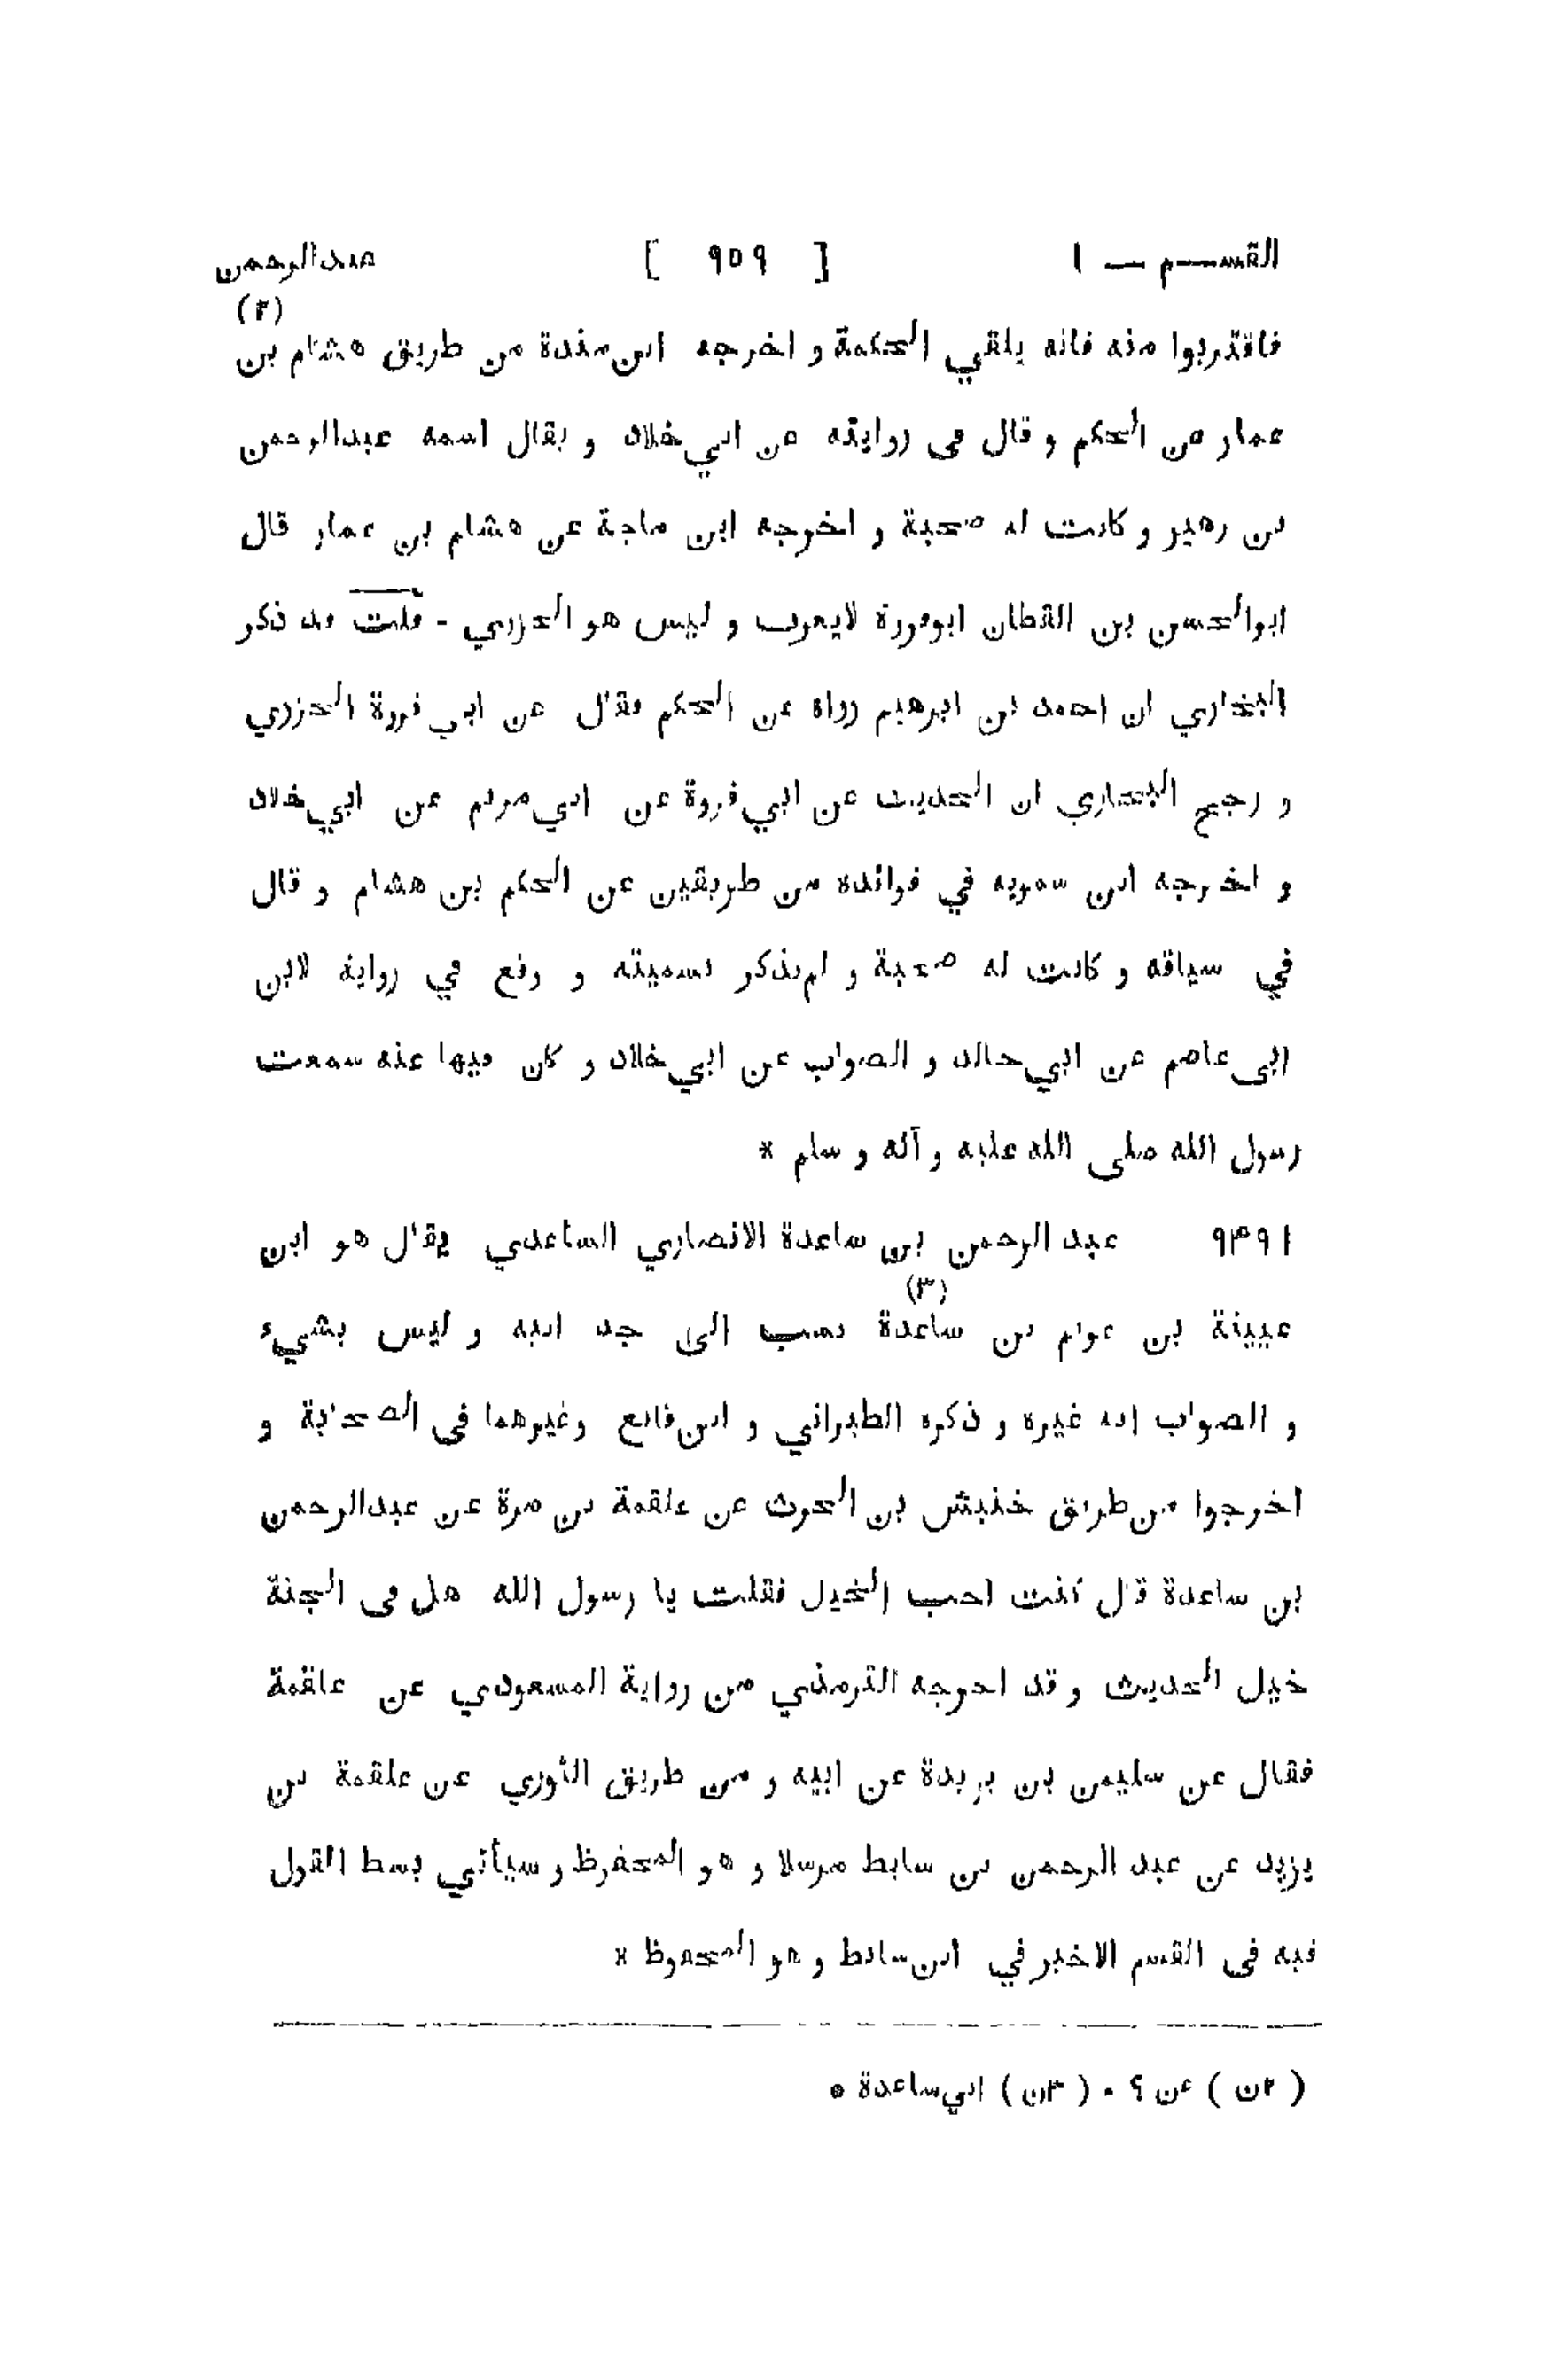 القســـم — ١ [ ٩٥٩ ] عبدالرحمن
(٢)
فاقتربوا منه فانه يلقي الحكمة و اخرجه ابن مندة من طريق هشام بن
عمار عن الحكم و قال في روايته عن ابي خلاد و يقال اسمه عبدالرحمن
بن زهير و كانت له صحبة و اخرجه ابن ماجة عن هشام بن عمار قال
ابوالحسن بن القطان ابوفروة لايعرف و ليس هو الجزري - قلت قد ذكر
البخاري ان احمد بن ابرهيم رواه عن الحكم فقال عن ابي فروة الجزري
و رجح البخاري ان الحديث عن ابي فروة عن ابي مريم عن ابي خلاد
و اخرجه ابن سمويه في فوائده من طريقين عن الحكم بن هشام و قال
في سياقه و كانت له صحبة و لم يذكر تسميته و وقع في رواية لابن
ابى عاصم عن ابي خالد و الصواب عن ابي خلاد و كان فيها عنه سمعت
رسول الله صلى الله عليه و آله و سلم *
٩٣٩١ عبد الرحمن بن ساعدة الانصاري الساعدي يقال هو ابن
(٣)
عيينة بن عويم بن ساعدة نسب الى جد ابيه و ليس بشيء
و الصواب انه غيره و ذكره الطبراني و ابن قانع وغيرهما في الصحابة و
اخرجوا من طريق خنبش بن الحرث عن علقمة بن مرة عن عبدالرحمن
بن ساعدة قال كنت احب الخيل فقلت يا رسول الله هل في الجنة
خيل الحديث و قد اخرجه الترمذي من رواية المسعودي عن علقمة
فقال عن سليمن بن بريدة عن ابيه و من طريق الثوري عن علقمة بن
يزيد عن عبد الرحمن بن سابط مرسلا و هو المحفوظ و سيأتي بسط القول
فيه في القسم الاخير في ابن سابط و هو المحفوظ *
( ٢ن ) عن ؟ • ( ٣ن ) ابي ساعدة *